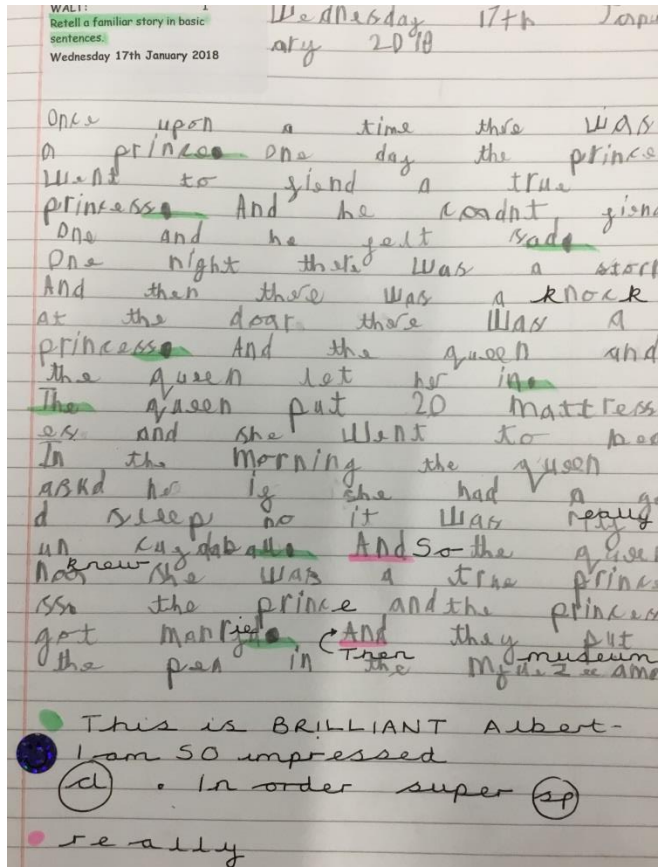 WALT:
Retell a familiar story in basic
sentences.
Wednesday 17th January 2018
Wednesday 17th Janu
ary 2018
Once upon a time thre was
a prince. One day the prince
went to fiend a true
princess. And he coadnt fiend
One and he felt sad.
One night there was a storm
And then there was a knock
at the doar there was a
princess. And the queen and
the queen let her in.
The queen put 20 mattress
es and she went to bed
In the morning the queen
askd her if she had a
d sleep no it was really
un And So the queen
knew she was a true
sso the prince and the princess
got married. And they put
Then museum
the pen in the
This is BRILLIANT Albert-
I am SO impressed
cl . In order super sp
really